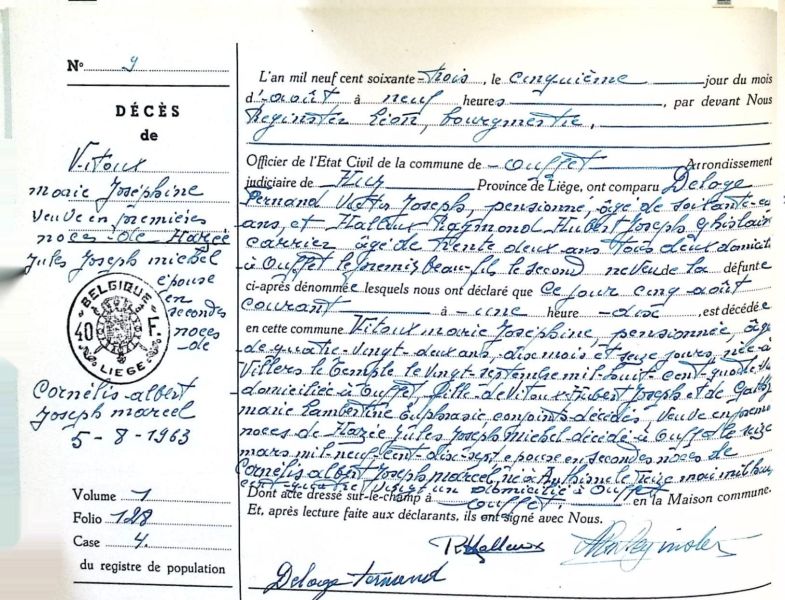 N° 9
DÉCÈS
de
Vitoux
marie Joséphine
veuve en premières
noces de Hazée
Jules Joseph michel
épouse
en
secondes
noces
de
BELGIQUE
40 F.
LIEGE
Cornélis albert
Joseph marcel
5-8-1963
Volume 1
Folio 128
Case 4.
du registre de population
L'an mil neuf cent soixante-trois, le cinquième jour du mois
d'août à neuf heures, par devant Nous
Léon, bourgmestre,
Officier de l'Etat Civil de la commune de Ouffet Arrondissement
judiciaire de Huy Province de Liège, ont comparu Deloge
Fernand Victor Joseph, pensionné, âgé de soixante-
ans, et Halleux Raymond Hubert Joseph Ghislain
carrier âgé de trente deux ans tous deux domicili
à Ouffet le premier beau-fils le second neveu de la défunte
ci-après dénommée lesquels nous ont déclaré que ce jour cinq août
courant à une heure dix, est décédée
en cette commune Vitoux marie Joséphine, pensionnée, âgé
de quatre-vingt-deux ans, dix mois et seize jours, née à
Villers le Temple le vingt septembre mil huit cent quatre
domiciliée à Ouffet fille de Vitoux Hubert Joseph et de
marie lambertine Euphrasie conjoints décédés, veuve en
noces de Hazée Jules Joseph michel décédé à Ouffet le seize
mars mil neuf cent dix-sept épouse en secondes noces de
Cornélis albert Joseph marcel, né à Anthisnes le treize mai mil huit
cent quatre vingt un domicilié à Ouffet
Dont acte dressé sur-le-champ à Ouffet en la Maison commune.
Et, après lecture faite aux déclarants, ils ont signé avec Nous.
R Halleux
Deloge Fernand